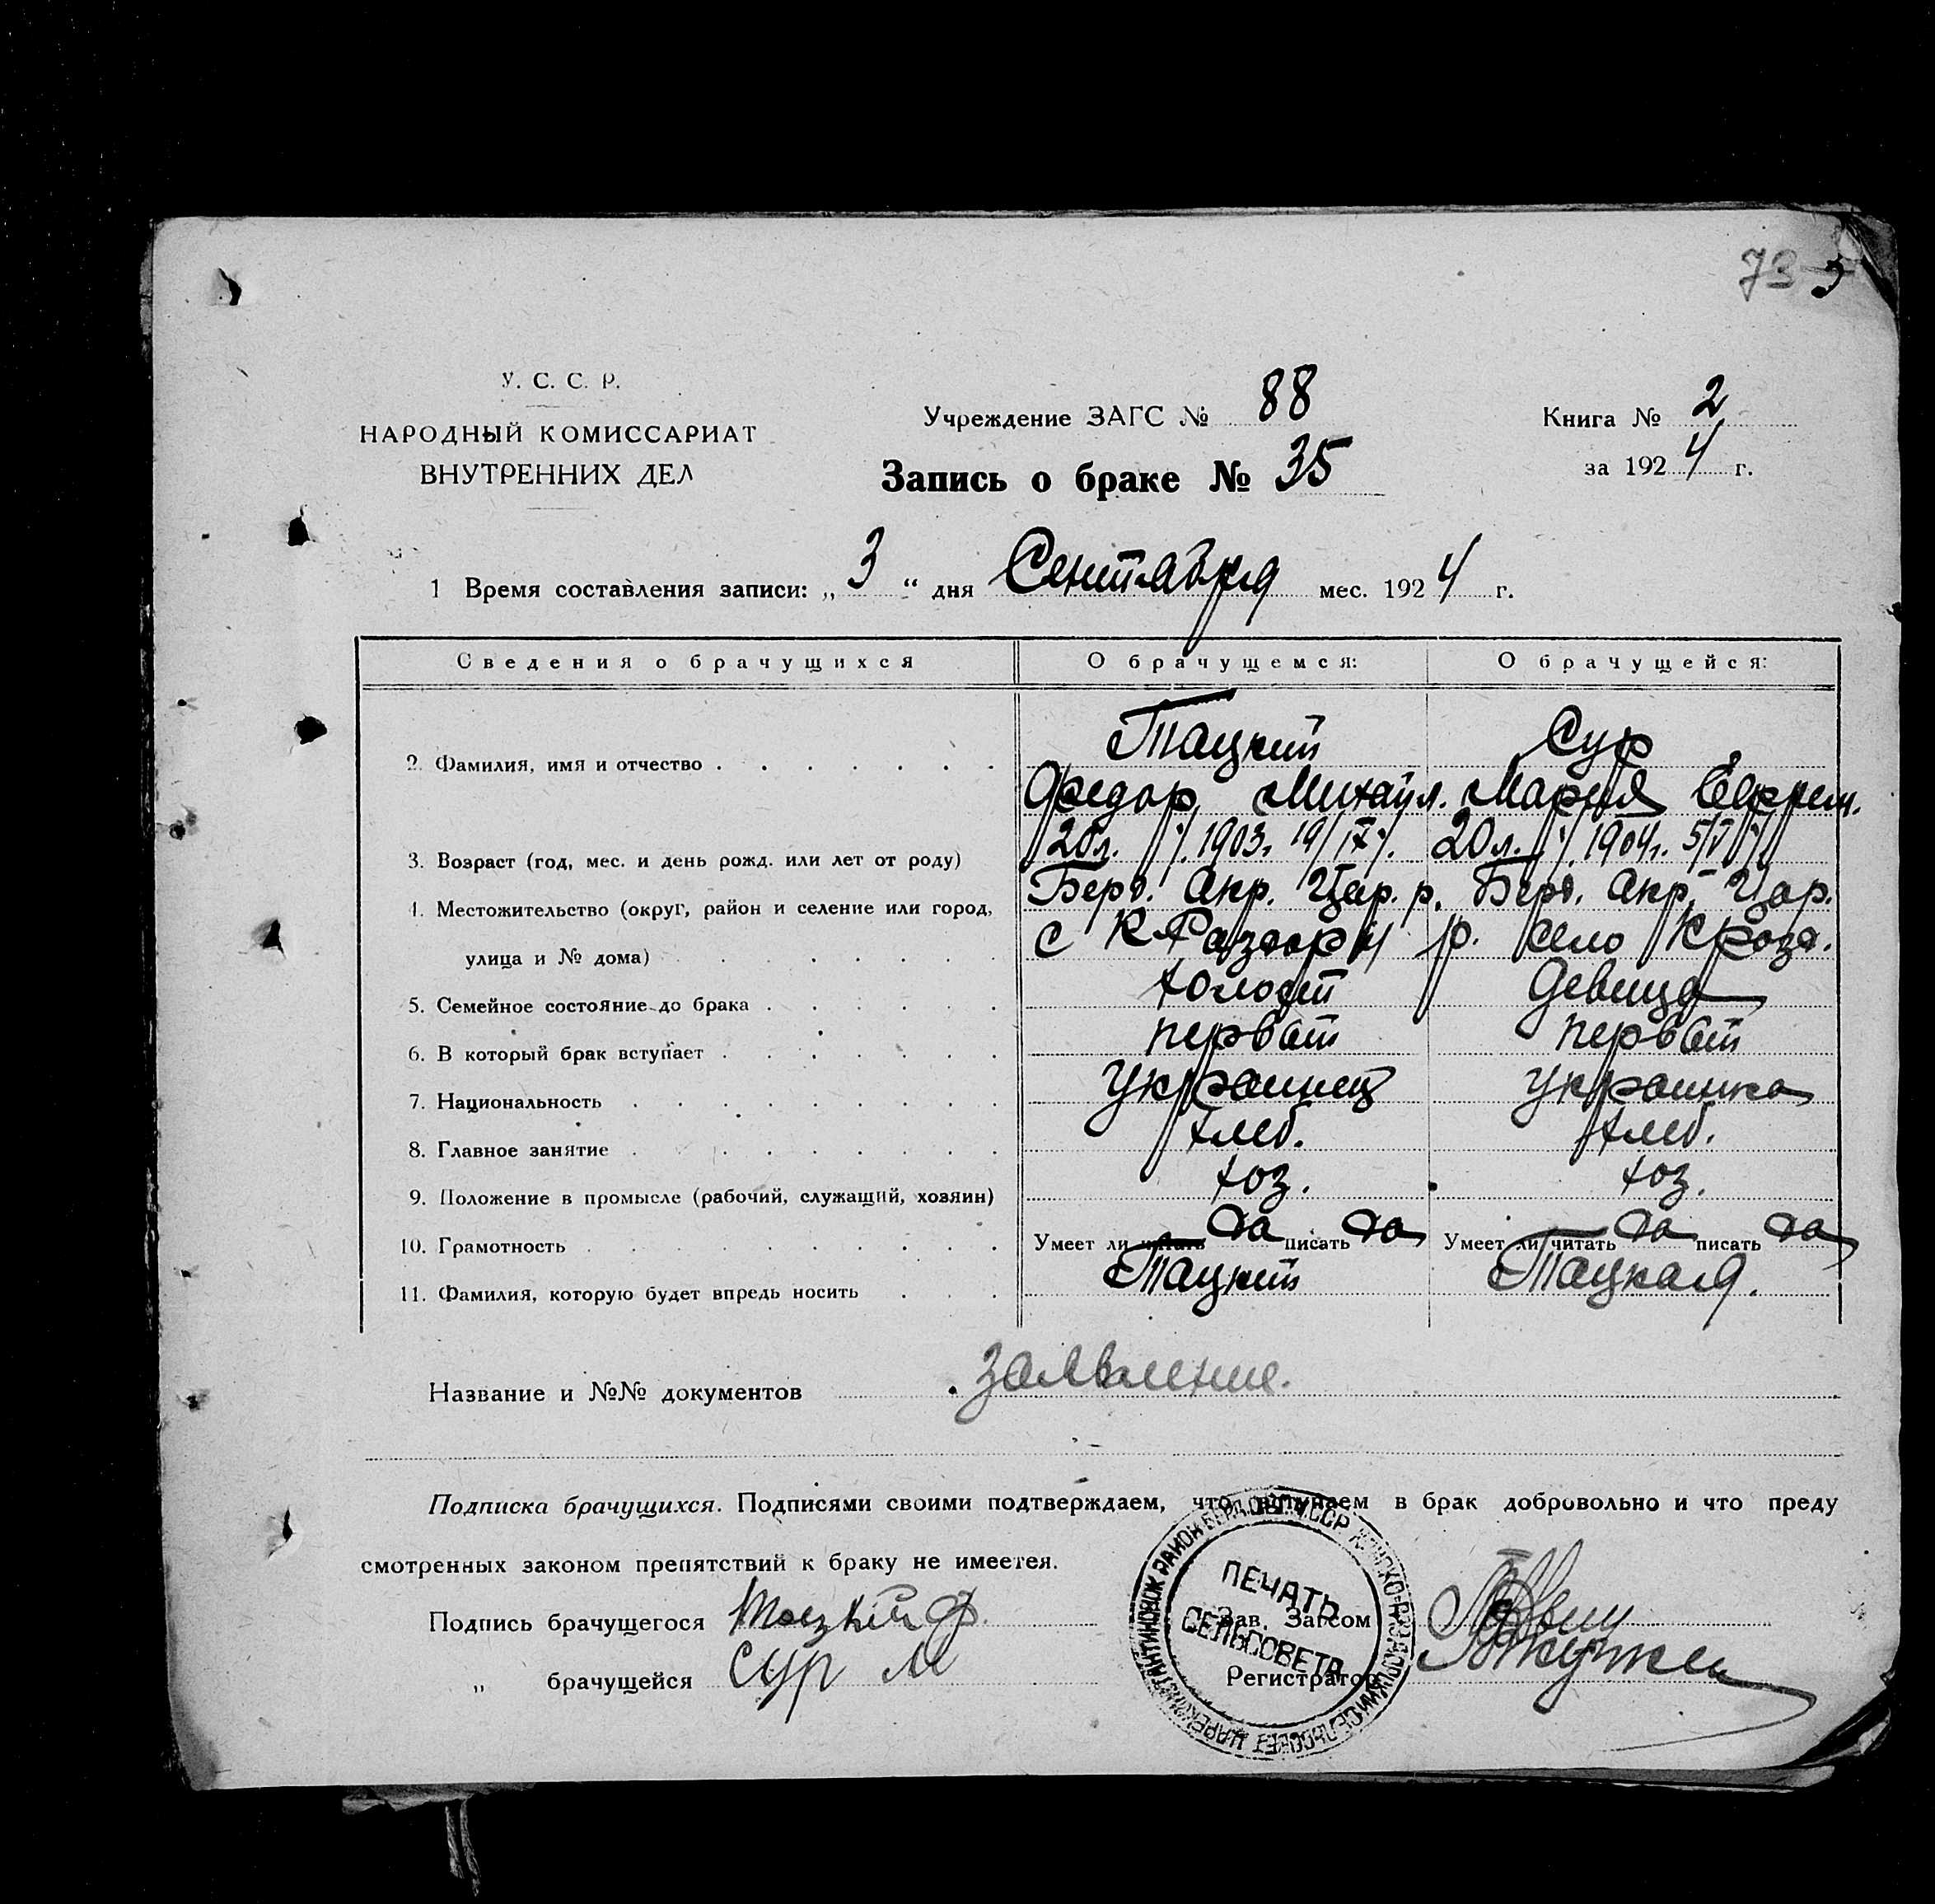 73
У. С. С. Р.
НАРОДНЫЙ КОМИССАРИАТ
ВНУТРЕННИХ ДЕЛ
Учреждение ЗАГС № 88
Запись о браке № 35
Книга № 2
за 1924 г.
1 Время составления записи: „3“ дня Сентября мес. 1924 г.
Сведения о брачущихся О брачущемся: О брачущейся:
Тацкий Сур
2. Фамилия, имя и отчество
Федор Михайл. Мария Ефрем.
3. Возраст (год, мес. и день рожд. или лет от роду) 20л. 1903. 20л. 1904г. 5/V
4. Местожительство (округ, район и селение или город, Берд. Окр. Цар. р. Берд. Окр. Цар.
улица и № дома) с К-Раздоры р. село Кразд.
5. Семейное состояние до брака холост девица
6. В который брак вступает первый первый
7. Национальность украинец украинка
8. Главное занятие хлеб. хлеб.
9. Положение в промысле (рабочий, служащий, хозяин) хоз. хоз.
10. Грамотность Умеет ли читать да писать да Умеет ли читать да писать да
11. Фамилия, которую будет впредь носить Тацкий Тацкая.
Название и №№ документов заявление.
Подписка брачущихся. Подписями своими подтверждаем, что вступаем в брак добровольно и что преду
смотренных законом препятствий к браку не имеется.
Подпись брачущегося Тацкий Ф.
Зав. Загсом
„ брачущейся Сур М
Регистратор
ПЕЧАТЬ
СЕЛЬСОВЕТА